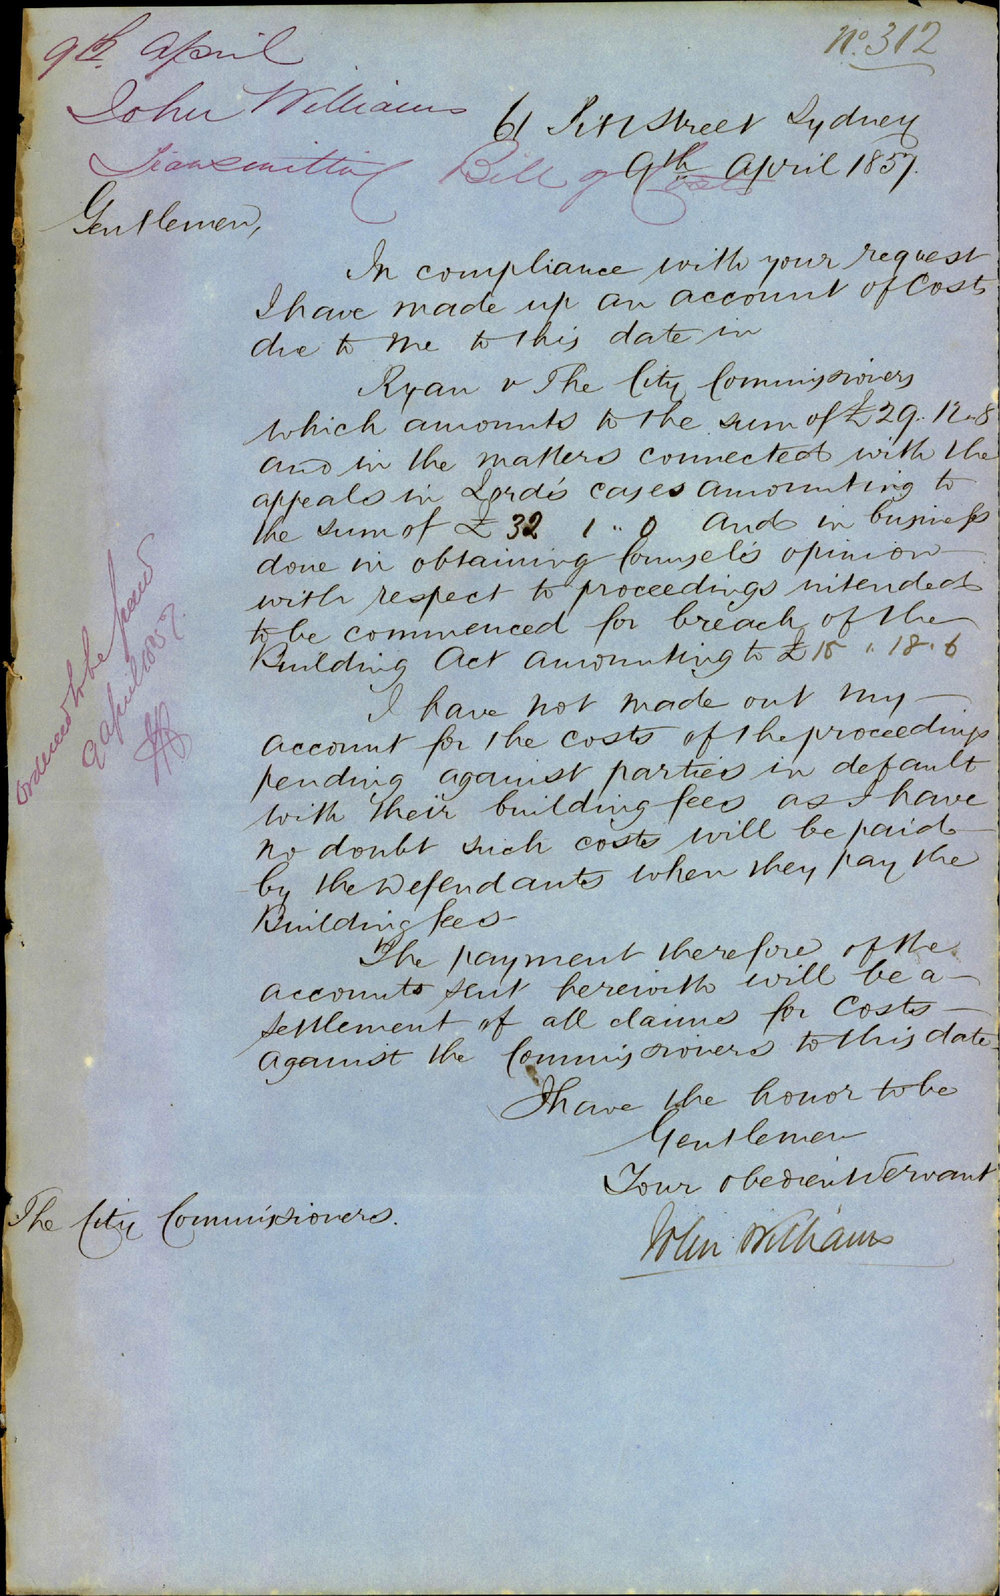 No. 312
9th. April
John Williams
Transmitting Bill of Costs
61 Pitt Street Sydney
9th April 1857.
Gentlemen,
In compliance with your request
I have made up an account of Costs
due to me to this date in
Ryan v The City Commissioners
which amounts to the sum of £29.12.8
and in the matters connected with the
appeals in Lord's cases amounting to
the sum of £32 1 " 0 And in business
done in obtaining Counsel's opinion
with respect to proceedings intended
to be commenced for breach of the
Building Act amounting to £15 . 18 . 6
I have not made out my
account for the costs of the proceedings
pending against parties in default
with their building fees as I have
no doubt such costs will be paid
by the Defendants when they pay the
Building fees
The payment therefore of the
accounts sent herewith will be a
settlement of all claims for Costs
against the Commissioners to this date
I have the honor to be
Gentlemen
Your obedient Servant
John Williams
The City Commissioners.
ordered to be paid
9 April 1857